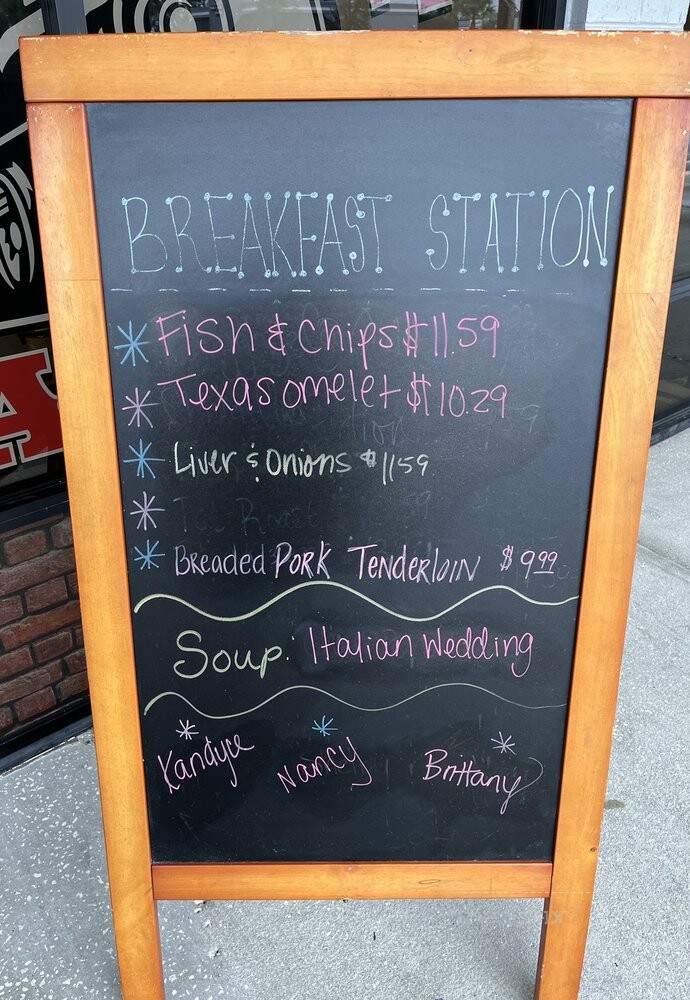 BREAKFAST STATION
Fish & Chips $11.59
Texas omelet $10.29
Liver & Onions $1159
Breaded PORK TENDERLOIN $9.99
Soup: Italian Wedding
Kandyce Nancy Brittany